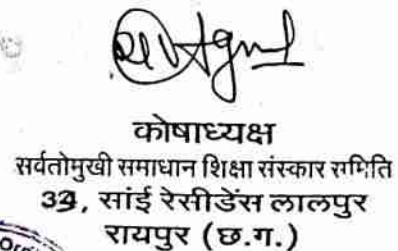 कोषाध्यक्ष
सर्वतोमुखी समाधान शिक्षा संस्कार समिति
, सांई रेसीडेंस लालपुर
रायपुर (छ.ग.)